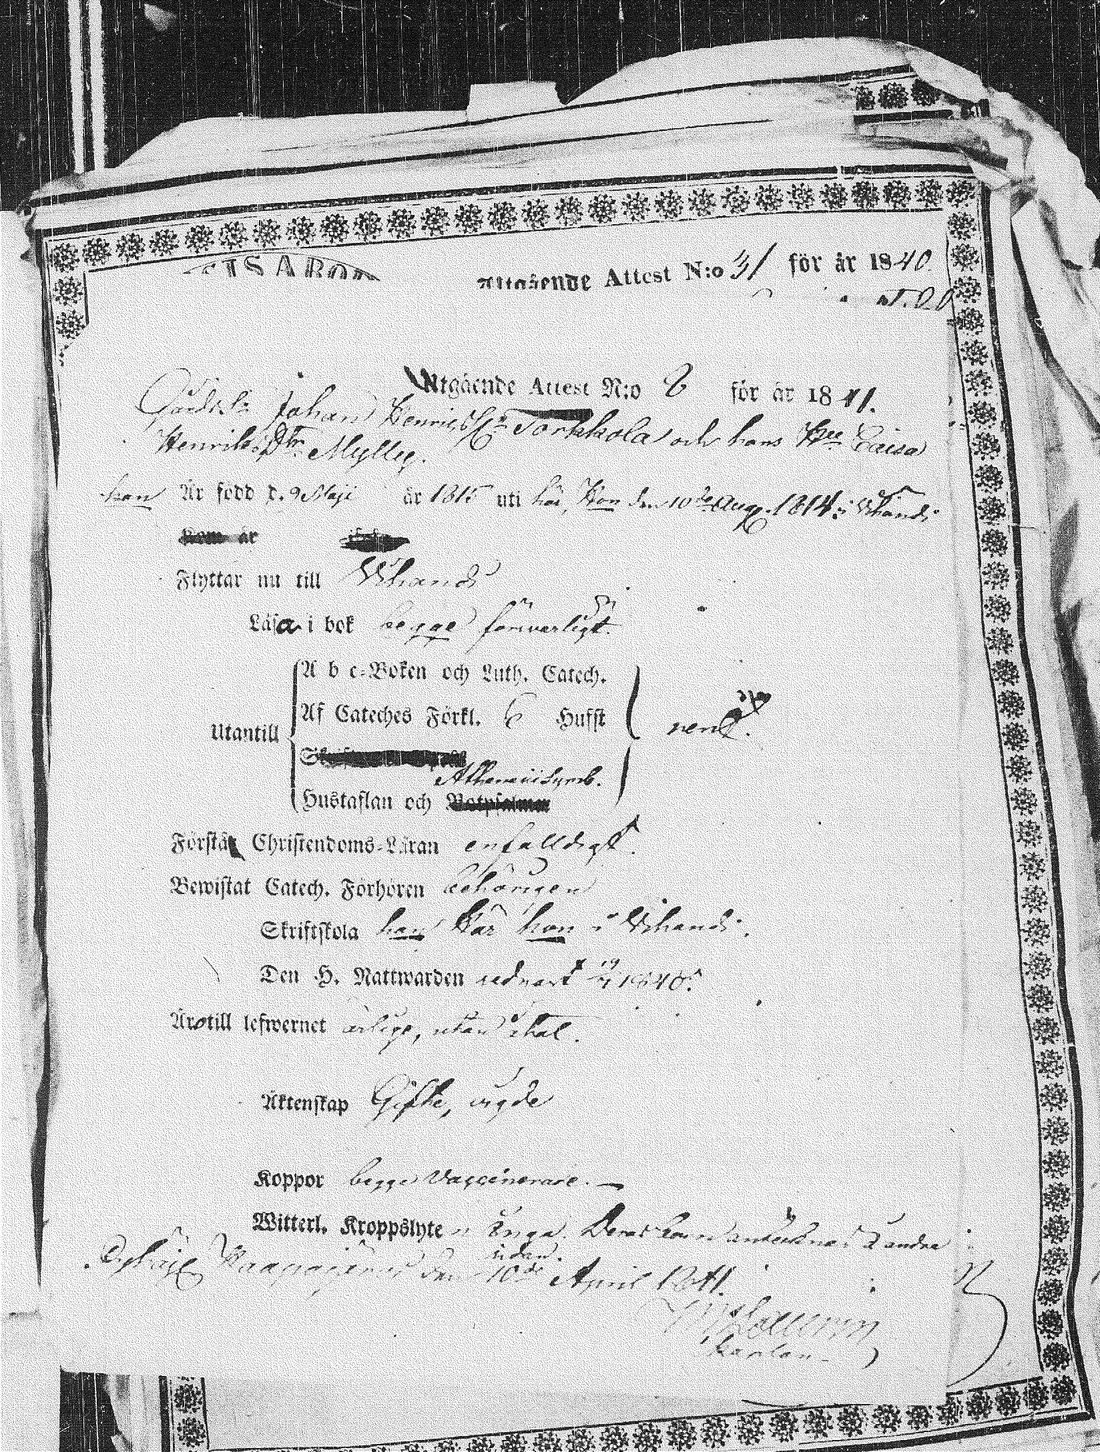 Utgående Attest N:o 31 för år 1840.
Utgående Attest N:o 6 för år 1841.
Johan Henrics Torkkola och hans Caisa
Henriks Dtr Mylly.
han Är född d. 9 Maji år 1815 uti här, Hon den 10de Aug. 1814 i Wihandi
är
Flyttar nu till Wihandi
Läsa i bok begge förswarligt.
Utantill
A b c-Boken och Luth. Catech.
Af Cateches Förkl. 6 Hufst
Athanasii Symb.
Hustaflan och Botpsalmer
Förstå Christendoms-Läran enfalldigt.
Bewistat Catech. Förhören behörigen
Skriftskola han här hon i Wihandi.
Den H. Nattwarden sednast 1840.
Äro till lefwernet ärlige, utan
Äktenskap Gifte, wigde
Koppor begge Vaccinerade.
Witterl. Kroppslyte Inga. Deras barn antecknas å andra
sidan. den 10de April 1841.